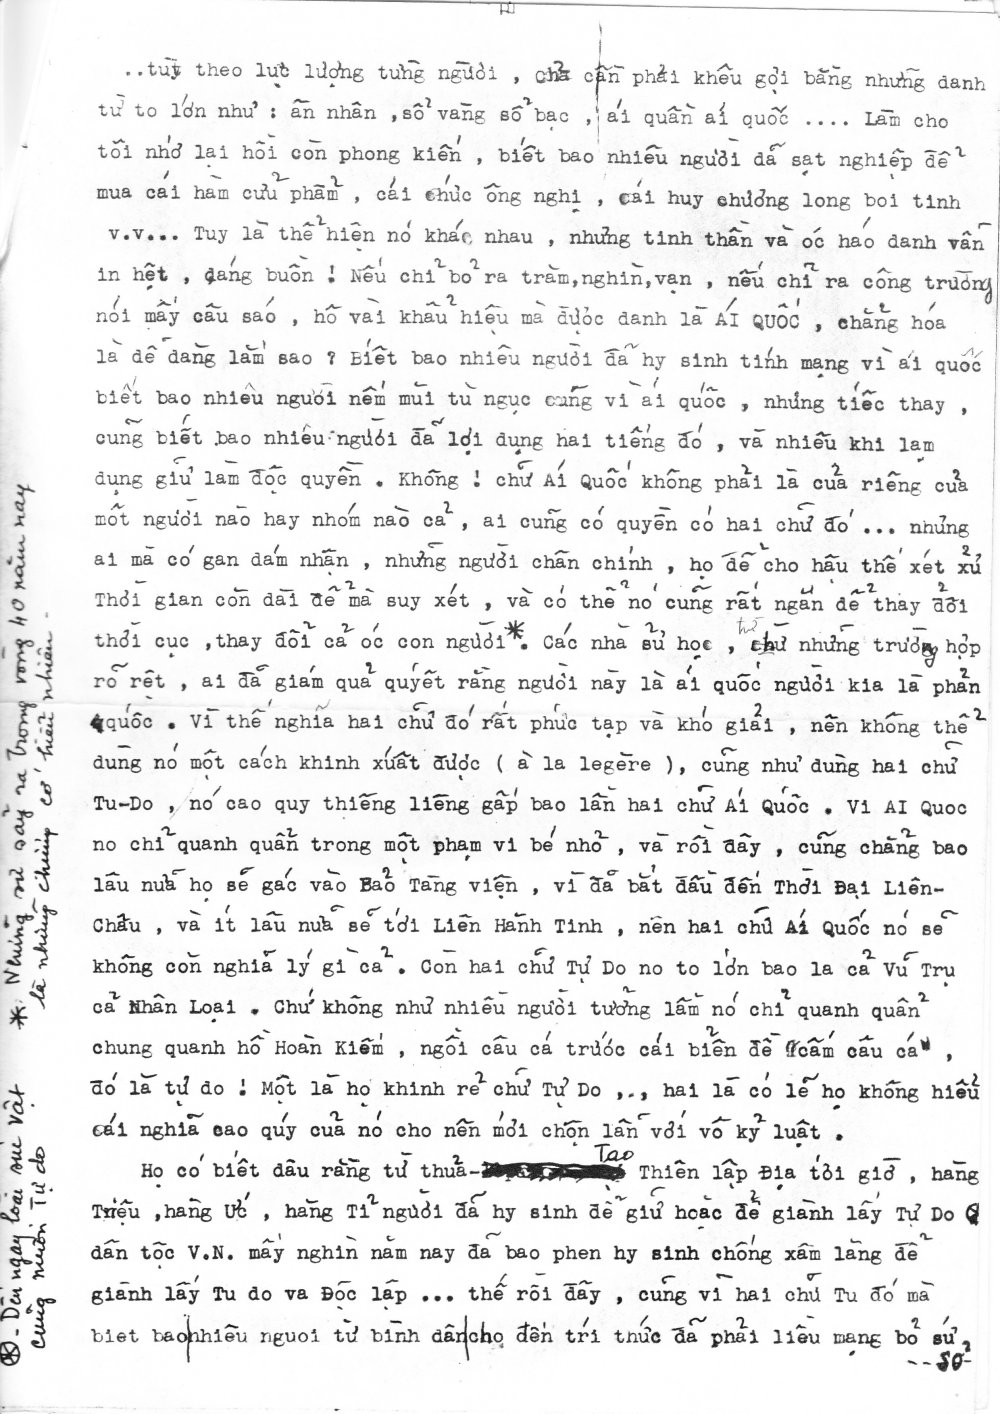 ..tùy theo lực lượng từng người , chả cần phải khêu gợi bằng những danh
từ to lớn như : ân nhân ,sổ vàng sổ bạc , ái quần ái quốc .... Làm cho
tôi nhớ lại hồi còn phong kiến , biết bao nhiêu người đã sạt nghiệp để
mua cái hàm cửu phẩm , cái chức ông nghị , cái huy chương long boi tinh
v.v... Tuy là thể hiện nó khác nhau , nhưng tinh thần và óc háo danh vẫn
in hệt , đáng buồn ! Nếu chỉ bỏ ra trăm,nghìn,vạn , nếu chỉ ra công trường
nói mấy câu sáo , hô vài khẩu hiệu mà được danh là ÁI QUỐC , chẳng hóa
là dễ dàng lắm sao ? Biết bao nhiêu người đã hy sinh tính mạng vì ái quốc
biết bao nhiêu người nếm mùi tù ngục cũng vì ái quốc , nhưng tiếc thay ,
cũng biết bao nhiêu người đã lợi dụng hai tiếng đó , và nhiều khi lạm
dụng giữ làm độc quyền . Không ! chữ Ái Quốc không phải là của riêng của
một người nào hay nhóm nào cả , ai cũng có quyền có hai chữ đó ... nhưng
ai mà có gan dám nhận , những người chân chính , họ để cho hậu thế xét xử
Thời gian còn dài để mà suy xét , và có thể nó cũng rất ngắn để thay đổi
thời cục ,thay đổi cả óc con người*. Các nhà sử học , trừ những trường hợp
rõ rệt , ai đã giám quả quyết rằng người này là ái quốc người kia là phản
quốc . Vì thế nghĩa hai chữ đó rất phức tạp và khó giải , nên không thể
dùng nó một cách khinh xuất được ( à la legère ), cũng như dùng hai chữ
Tu-Do , nó cao quy thiêng liêng gấp bao lần hai chữ Ái Quốc . Vi AI Quoc
no chỉ quanh quẩn trong một phạm vi bé nhỏ , và rồi đây , cũng chẳng bao
lâu nữa họ sẽ gác vào Bảo Tàng viện , vì đã bắt đầu đến Thời Đại Liên-
Châu , và ít lâu nữa sẽ tới Liên Hành Tinh , nên hai chữ Ái Quốc nó sẽ
không còn nghĩa lý gì cả . Còn hai chữ Tự Do no to lớn bao la cả Vũ Trụ
cả Nhân Loại . Chứ không như nhiều người tưởng lầm nó chỉ quanh quẩn
chung quanh hồ Hoàn Kiếm , ngồi câu cá trước cái biển đề "cấm câu cá" ,
đó là tự do ! Một là họ khinh rẻ chữ Tự Do ,.., hai là có lẽ họ không hiểu
cái nghĩa cao quý của nó cho nên mới chộn lẫn với vô kỷ luật .
Họ có biết đâu rằng từ thuở Tạo Thiên lập Địa tới giờ , hàng
Triệu ,hàng Ức , hàng Tỉ người đã hy sinh để giữ hoặc để giành lấy Tự Do
dân tộc V.N. mấy nghìn năm nay đã bao phen hy sinh chống xâm lăng để
giành lấy Tu do va Độc lập ... thế rồi đây , cũng vì hai chữ Tu đó mà
biet bao nhiêu nguoi từ bình dân cho đến trí thức đã phải liều mạng bỏ sứ
--50-
*. Những sự xảy ra trong vòng 40 năm nay
là những chứng cớ hiển nhiên.
* - Đến ngay loài súc vật
cũng muốn Tự do